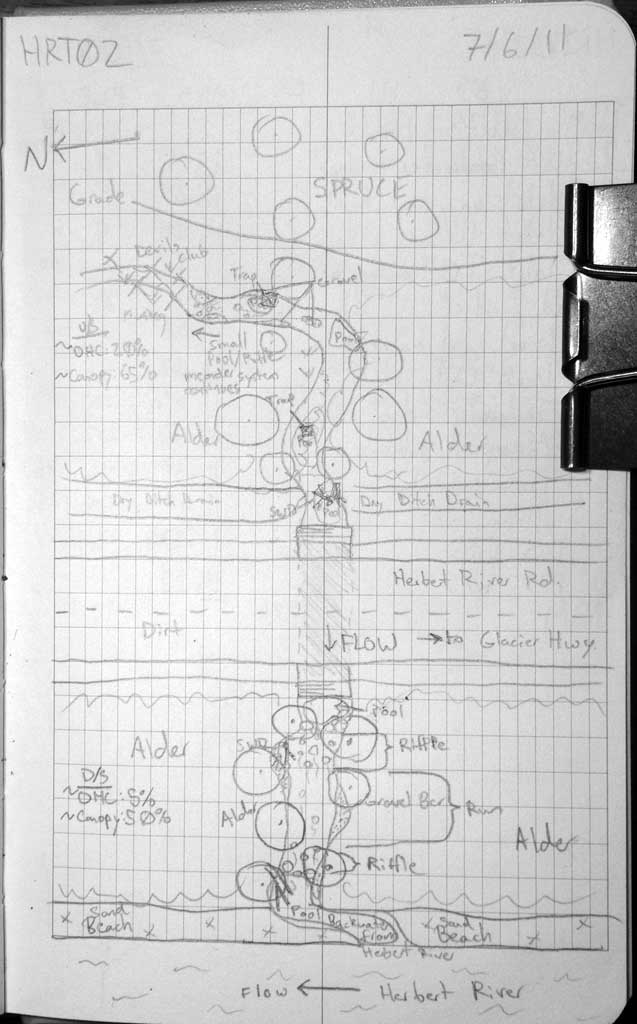 HRT02
7/6/11
N
SPRUCE
Grade
Devil's club
Trap
Gravel
U/S
~OHC: 20%
~Canopy: 65%
Small
Pool/Riffle
meander system
continues
Pool
Trap
Pool
Alder
Alder
Dry Ditch Drain
SWD
Pool
Dry Ditch Drain
Herbert River Rd.
Dirt
FLOW
to Glacier Hwy.
Pool
Alder
SWD
Riffle
D/S
~OHC: 5%
~Canopy: 50%
Gravel Bar
Run
Alder
Alder
Riffle
Sand
Beach
Pool
Backwater
from
Hebert River
Sand
Beach
FLOW
Herbert River